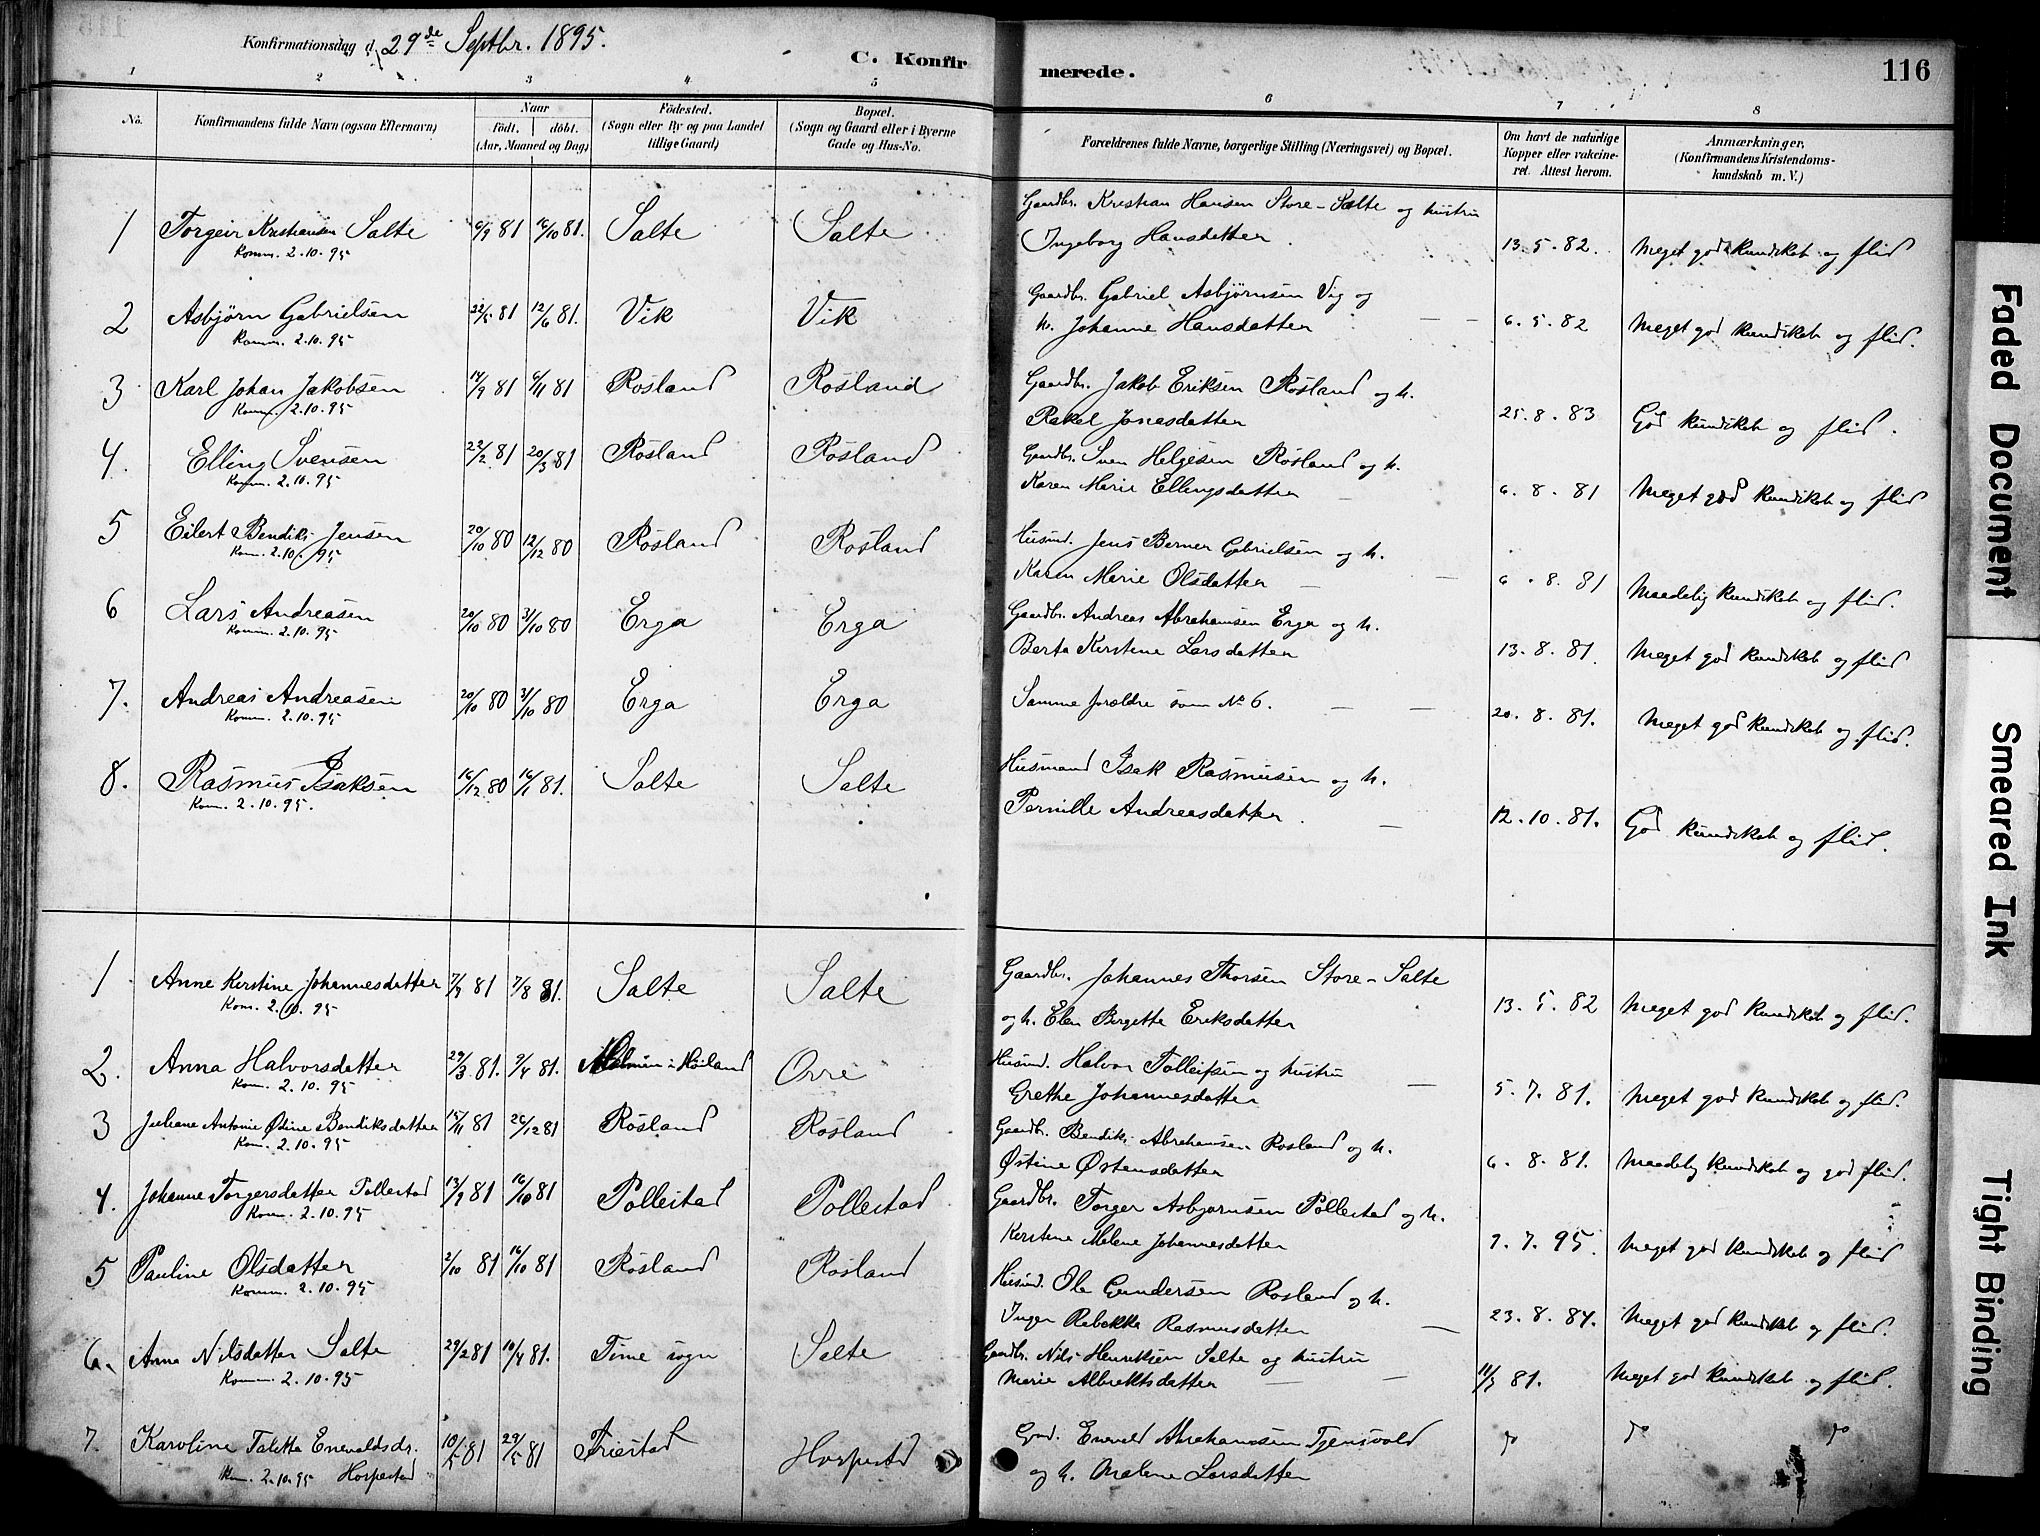 Konfirmationsdag d. 29de Septbr. 1895.
C. Konfirmerede.
116
1 2 3 4 5 6 7 8
No.
Konfirmandens fulde Navn (ogsaa Efternavn)
Naar
födt. döbt.
(Aar, Maaned og Dag)
Födested.
(Sogn eller By og paa Landet
tillige Gaard)
Bopæl.
(Sogn og Gaard eller i Byerne
Gade og Hus-No.
Forældrenes fulde Navne, borgerlige Stilling (Næringsvei) og Bopæl.
Om havt de naturlige
Kopper eller vakcine-
ret. Attest herom.
Anmærkninger,
(Konfirmandens Kristendoms-
kundskab m.V.)
1 Torgeir Kristiansen Salte 6/9 81 16/10 81. Salte Salte Gaardbr. Kristian Hansen Store-Salte og hustru
Komm. 2.10.95 Ingeborg Hansdatter. 13.5.82. Meget god kundskab og flid
2 Asbjørn Gabrielsen 22/5 81 12/6 81. Vik Vik Gaardbr. Gabriel Asbjørnsen Vig og
Komm. 2.10.95 h. Johanne Hansdatter 6.5.82 Meget god kundskab og flid.
3 Karl Johan Jakobsen 14/9 81 6/11 81 Rosland Rosland Gaardbr. Jakob Eriksen Rosland og h.
Komm. 2.10.95 Rakel Jonasdatter 25.8.83 God kundskab og flid.
4. Elling Svensen 22/2 81 20/3 81 Rosland Rosland Gaardbr. Sven Helgesen Rosland og h.
Komm. 2.10.95 Karen Marie Ellingsdatter 6.8.81 Meget god kundskab og flid
5 Eilert Bendik Jensen 20/10 80 12/12 80 Rosland Rosland Husmd. Jens Berner Gabrielsen og h.
Kom. 2.10.95 Karen Marie Olsdatter 6.8.81 Maadelig kundskab og flid.
6 Lars Andreasen 20/10 80 31/10 80 Erga Erga Gaardbr. Andreas Abrahamsen Erga og h.
Komm. 2.10.95 Berta Kirstine Larsdatter 13.8.81. Meget god kundskab og flid
7. Andreas Andreasen 20/10 80 31/10 80 Erga Erga Samme forældre som No 6.
Komm. 2.10.95 20.8.81. Meget god kundskab og flid.
8. Rasmus Isaksen 16/12 80 16/1 81. Salte Salte Husmand Isak Rasmusen og h.
Kom. 2.10.95. Pernille Andreasdatter. 12.10.81. God kundskab og flid.
1 Anne Kerstine Johannesdatter 7/7 81 7/8 81. Salte Salte Gaardbr. Johannes Thorsen Store-Salte
Kom. 2.10.95 og h. Elen Birgette Eriksdatter 13.5.82 Meget god kundskab og flid.
2. Anna Halvorsdatter 29/3 81. 9/4 81. i Höiland Orre Husmd. Halvor Tolleifsen og hustru
Kom. 2.10.95 Grethe Johannesdatter 5.7.81. Meget god kundskab og flid.
3 Juliane Antonie Østine Bendiksdatter 15/11 81 26/12 81 Rosland Rosland Gaardbr. Bendik Abrahamsen Rosland og h.
Kom. 2.10.95 Østine Østensdatter 6.8.81. Maadelig kundskab og god flid.
4. Johanne Torgersdatter Pollestad 13/9 81 16/10 81 Pollestad Pollestad Gaardbr. Torger Asbjørnsen Pollestad og h.
Kom. 2.10.95 Kerstine Malene Johannesdatter 7.7.95. Meget god kundskab og flid
5 Pauline Olsdatter 2/10 81 16/10 81 Rosland Rosland Husmd. Ole Gundersen Rosland og h.
Komm. 2.10.95 Inger Rebekka Rasmusdatter 23.8.84. Meget god kundskab og flid.
6. Anna Nilsdatter Salte 24/2 81 10/4 81. Time sogn Salte Gaardbr. Nils Henriksen Salte og hustru
Komm. 2.10.95 Marie Albrektsdatter 11/7 81. Meget god kundskab og flid.
7. Karoline Talitta Enevaldsdr. 10/5 81 29/5 81 Friestad Horpestd Gmd. Enevald Abrahamsen Tjensvold do do do
Kom. 2.10.95 Horpestad og h. Malene Larsdatter
Faded Document
Smeared Ink
Tight Binding